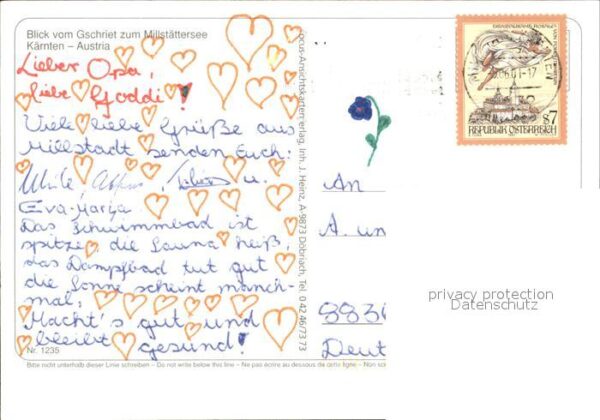 Blick vom Gschriet zum Millstättersee
Kärnten – Austria
Lieber Opa,
liebe Goddi!
Viele liebe Grüße aus
Millstadt senden Euch:
u.
Eva-Marija
Das Schwimmbad ist
spitze, die Sauna heiß,
das Dampfbad tut gut
die Sonne scheint manch-
mal,
Macht's gut und
bleibt gesund!
Nr. 1235
Bitte nicht unterhalb dieser Linie schreiben – Do not write below this line – Ne pas écrire au dessous de cette ligne – Non sc
Locus-Ansichtskartenverlag, Inh. J. Heinz, A-9873 Döbriach, Tel. 0 42 46/73 73
S 7
REPUBLIK ÖSTERREICH
An
A. un
Deut
privacy protection
Datenschutz